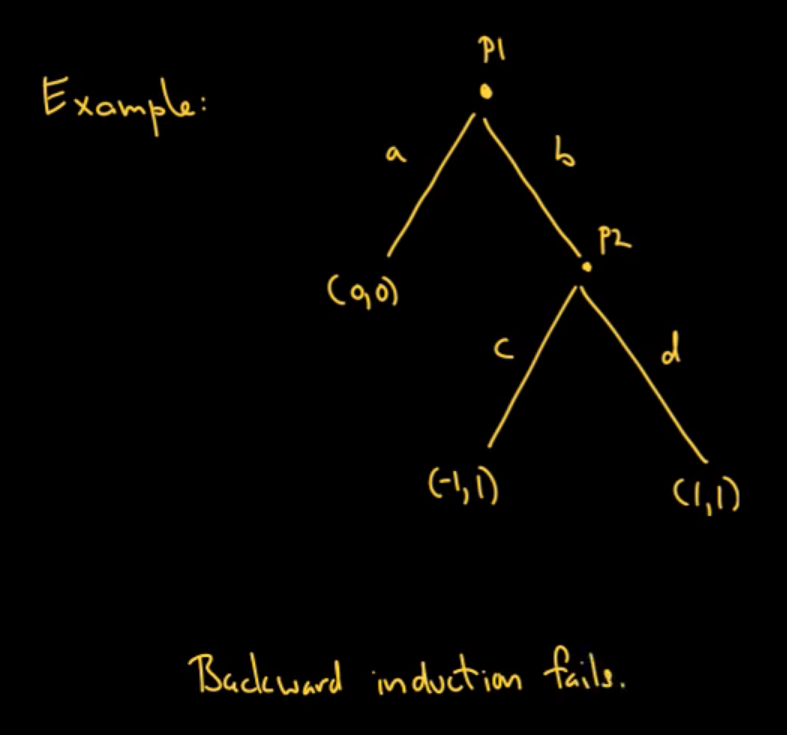 P1
Example:
a
b
P2
(0,0)
c
d
(-1,1)
(1,1)
Backward induction fails.